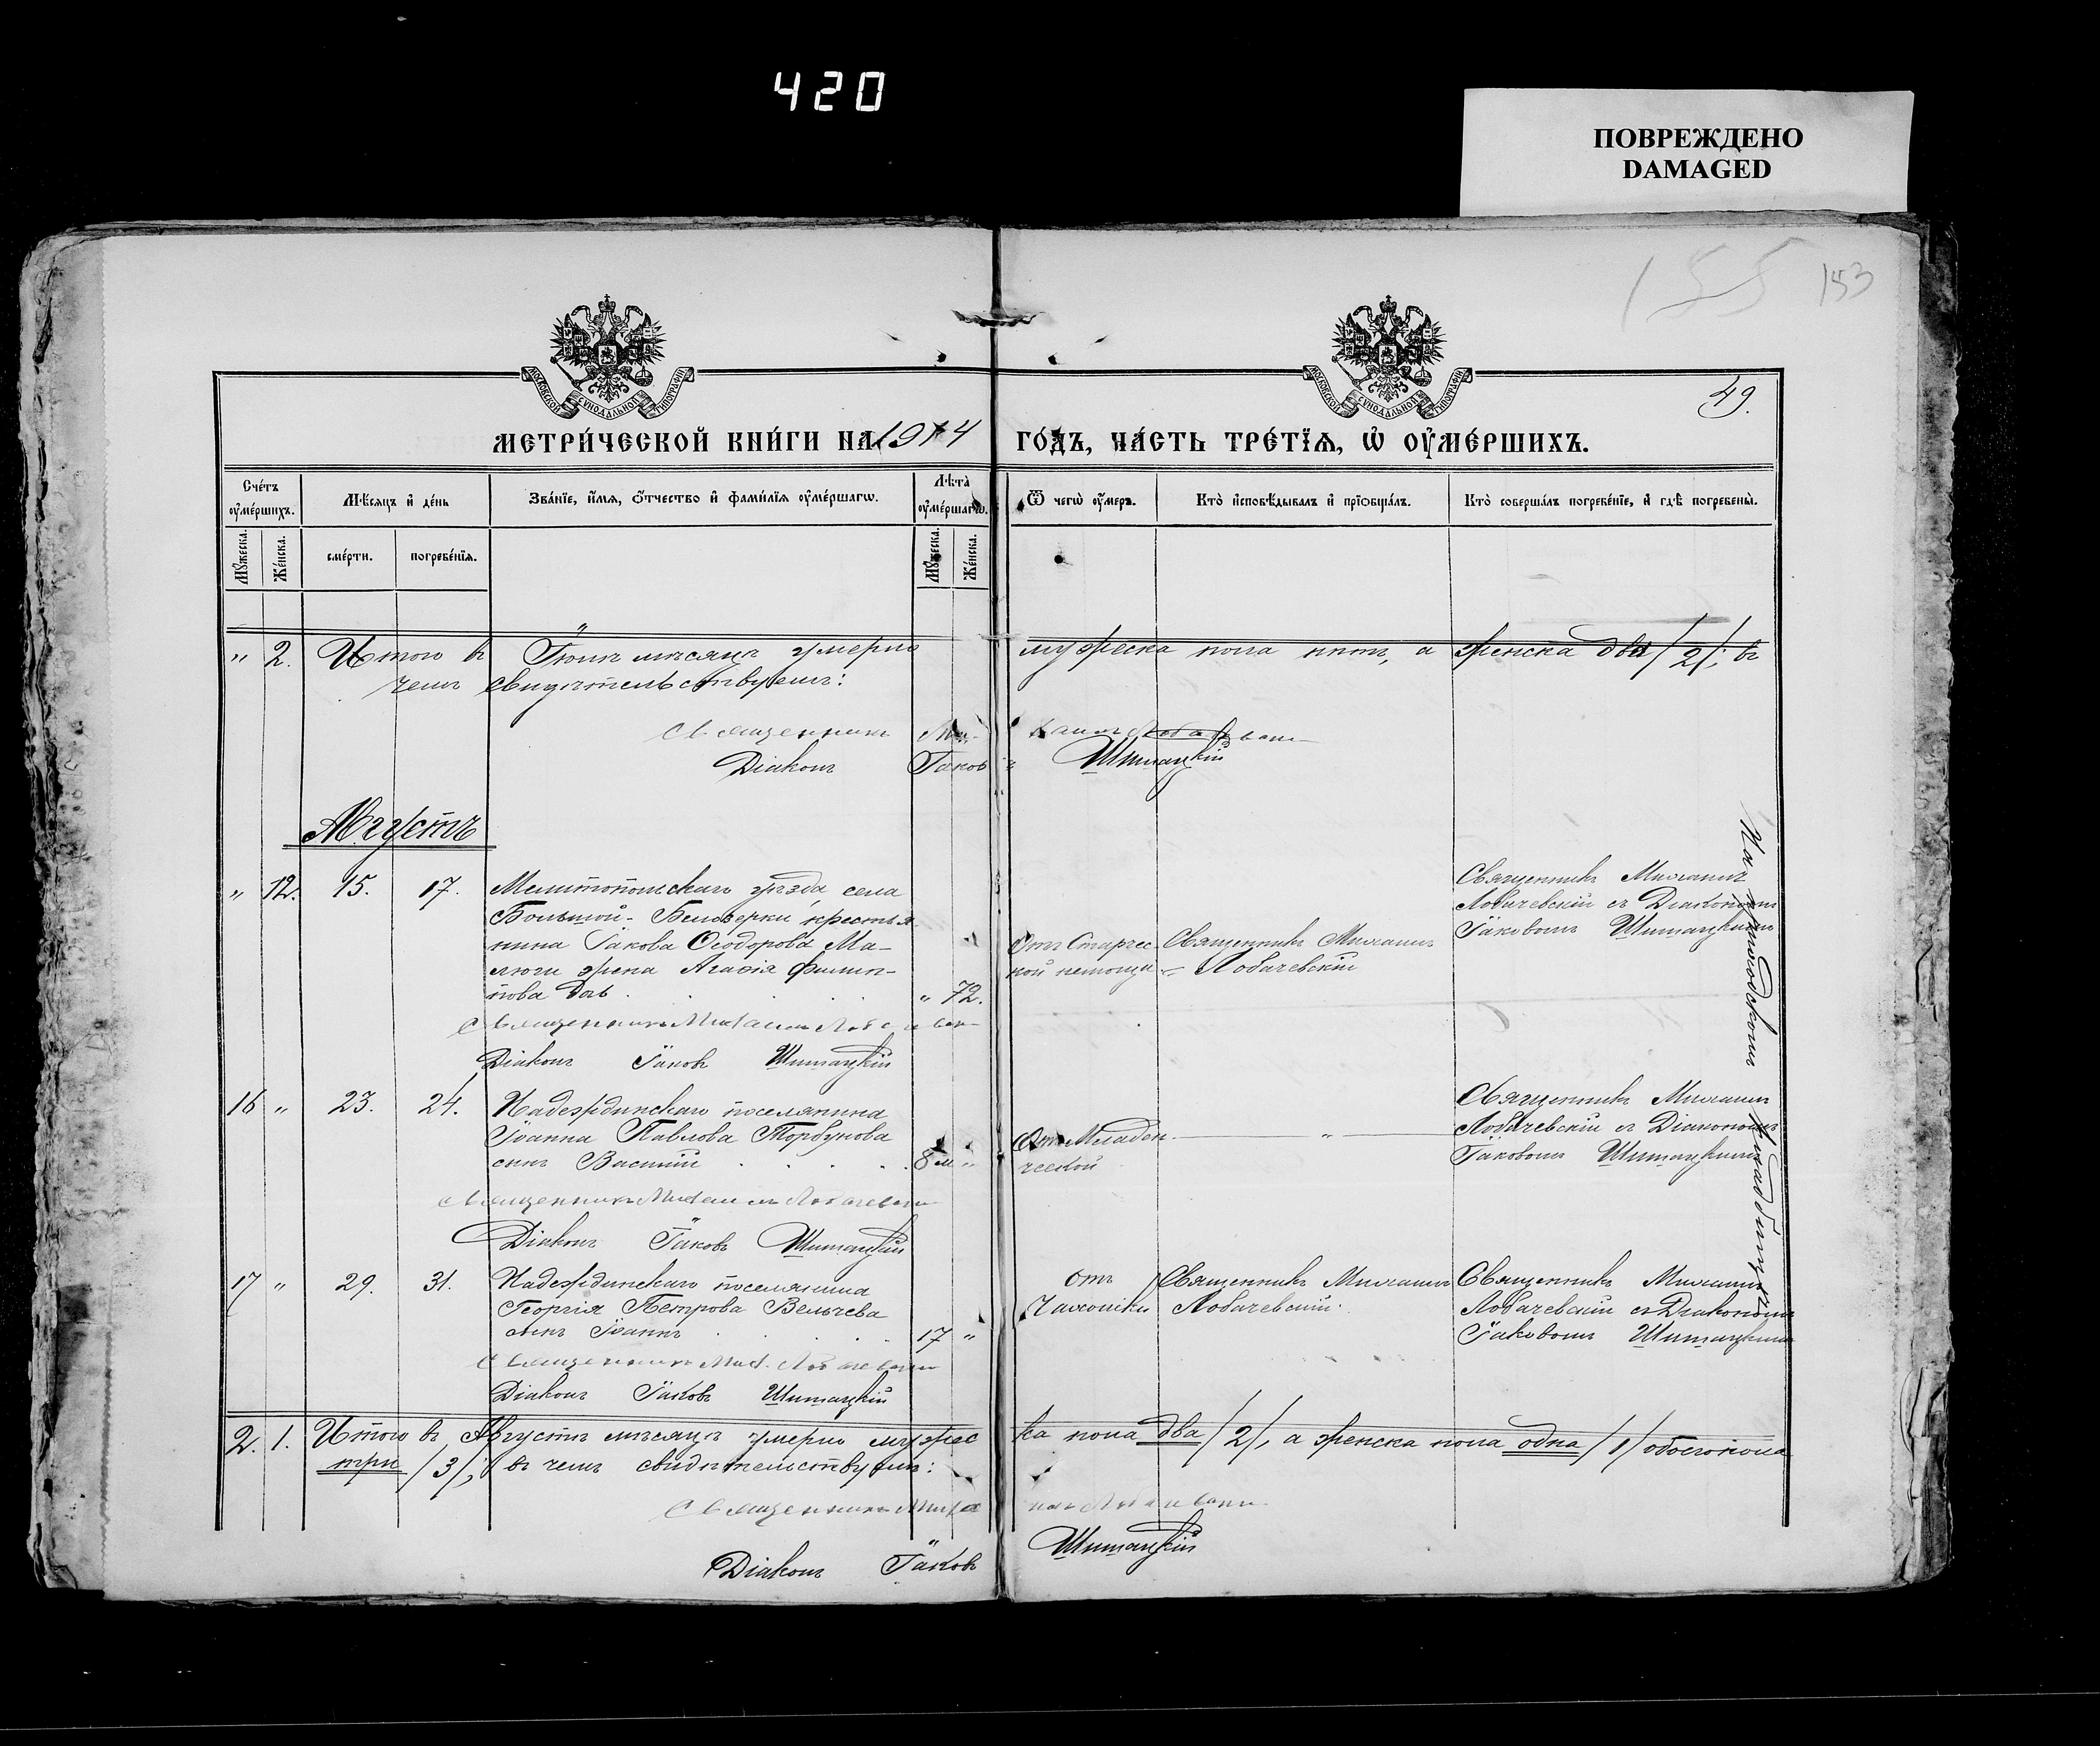 420
ПОВРЕЖДЕНО
DAMAGED
155 153
МОСКОВСКОЙ СѴНОДАЛЬНОЙ ТИПОГРАФІИ
МОСКОВСКОЙ СѴНОДАЛЬНОЙ ТИПОГРАФІИ
49.
МЕТРИ́ЧЕСКОЙ КНИ́ГИ НА 1914 ГО́ДЪ, ЧА́СТЬ ТРЕ́ТЇѦ, Ѡ҆ ОУ҆МЕ́РШИХЪ.
Сче́тъ оу҆ме́ршихъ.
Мѣ́сѧцъ и҆ де́нь
Зва́нїе, и҆́мѧ, ѻ҆́тчество и҆ фами́лїѧ оу҆ме́ршагѡ.
Лѣ́та̀ оу҆ме́ршагѡ.
Ѿ чегѡ̀ оу҆́меръ.
Кто̀ и҆сповѣ́дывалъ и҆ прїѡбща́лъ.
Кто̀ соверша́лъ погребе́нїе, и҆ гдѣ̀ погребены̀.
Мꙋ́жеска.
Же́нска.
сме́рти.
погребе́нїѧ.
Мꙋ́жеска.
Же́нска.
" 2. Итого въ Іюлѣ мѣсяцѣ умерло мужеска пола нѣтъ, а женска два /2/; въ
чемъ свидѣтельствуемъ:
Священникъ Михаилъ Лобачевскій
Діаконъ Іаковъ Шитацкій
Августъ
" 12. 15. 17. Мелитопольскаго уѣзда, села
Большой-Бѣлозерки крестья
нина Іакова Ѳеодорова Ма-
люги жена Агаѳія Филип-
пова дочь . . . " 72.
Отъ старчес-
кой немощи
Священникъ Михаилъ
Лобачевскій
Священникъ Михаилъ
Лобачевскій съ Діакономъ
Іаковомъ Шитацкимъ
На приходскомъ кладбищѣ
Священникъ Михаилъ Лобачевскій
Діаконъ Іаковъ Шитацкій
16 " 23. 24. Надеждинскаго поселянина
Іоанна Павлова Торбунова
сынъ Василій . . . . 8 м "
Отъ Младен
ческой
"
Священникъ Михаилъ
Лобачевскій съ Діакономъ
Іаковомъ Шитацкимъ
Священникъ Михаилъ Лобачевскій
Діаконъ Іаковъ Шитацкій
17 " 29. 31. Надеждинскаго поселянина
Георгія Петрова Вельчева
сынъ Іоаннъ . . . . 17 "
отъ
Чахотки
Священникъ Михаилъ
Лобачевскій.
Священникъ Михаилъ
Лобачевскій съ Діакономъ
Іаковомъ Шитацкимъ
Священникъ Мих. Лобачевскій
Діаконъ Іаковъ Шитацкій
2. 1. Итого въ Августѣ мѣсяцѣ умерло мужес ка пола два /2/, а женска пола одна /1/ обоего пола
три /3/; въ чемъ свидѣтельствуемъ:
Священникъ Михаилъ Лобачевскій
Діаконъ Іаковъ Шитацкій